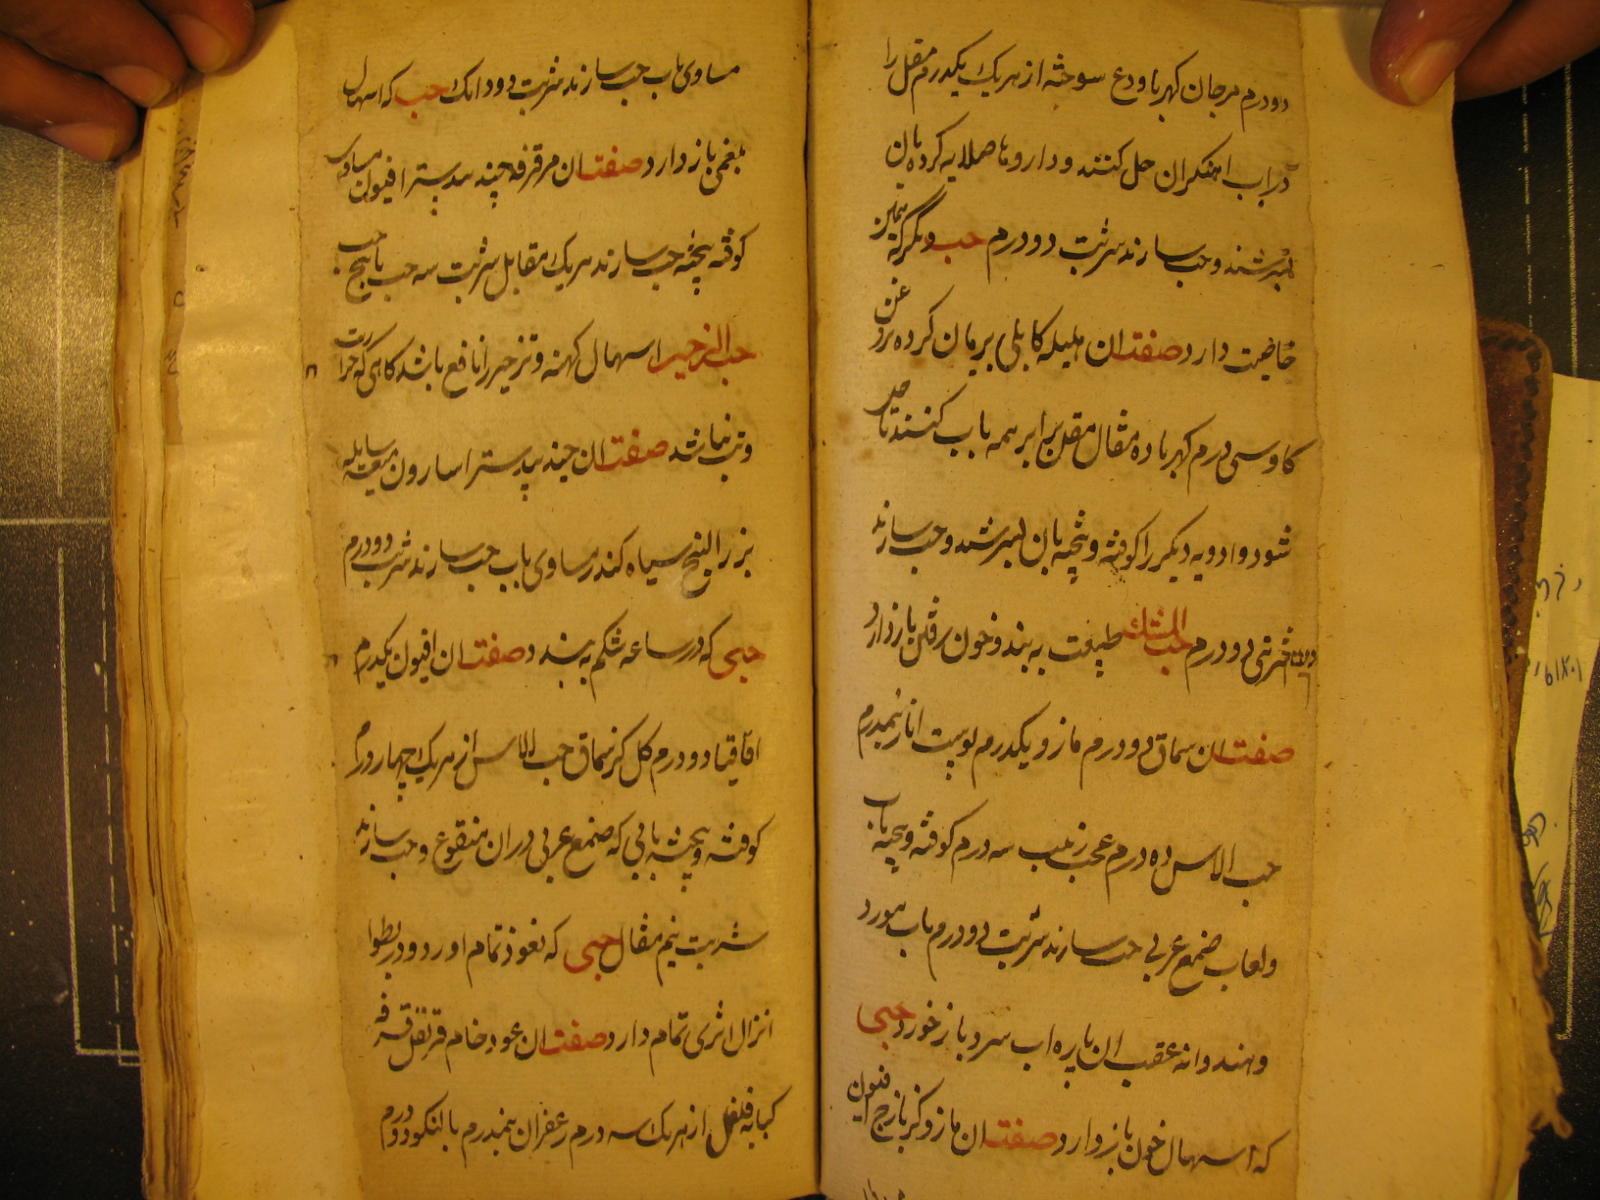 دودرم مرجان کهربا ودع سوخته از هریک یکدرم مقل را
دراب اهنکران حل کنند و داروها صلایه کرده بان
بسرشند و حب سازند شربت دودرم حب دیگر که همین
خاصیت دارد صفت ان هلیله کابلی بریان کرده بروغن
کاو سی درم کهربا ده مثقال مقل برابر همه باب کنند تا حل
شود و ادویه دیکر را کوفته و پخته بان بسرشند و حب سازند
شربتی دودرم حب المشک طبیعت به بندد و خون رفتن بازدارد
صفت ان سماق دودرم مازو یکدرم پوست انار نیمدرم
حب الاس ده درم عجب زبیب سه درم کوفته و پخته باب
ولعاب صمغ عربی حب سازند شربت دودرم باب مورد
و هندوانه عقب ان پاره اب سرد باز خورد حبی
که اسهال خون بازدارد صفت ان مازو کزبازج افیون
مساوی باب حب سازند شربت دودانک حب که اسهال
بلغمی بازدارد صفت ان مر قرفه جندبیدستر افیون مساوی
کوفته پخته حب سازند هریک مقابل شربت سه حب یا پنج حب
حب الزحیر اسهال کهنه و زحیر را نافع باشد کاهی که حرارت
وتب نباشد صفت ان جندبیدستر اسارون میعه سایله
بزرالبنج سیاه کندر مساوی باب حب سازند شربت دودرم
حبی که درساعه شکم به بندد صفت ان افیون یکدرم
اقاقیا دودرم کل کز سماق حب الاس از هریک چهاردرم
کوفته و پخته بابی که صمغ عربی دران منقوع و حب سازند
شربت نیم مثقال حبی که نعوذ تمام اورد و در بطوا
انزال اثری تمام دارد صفت ان عود خام قرنفل قرفه
کبابه فلفل از هریک سه درم زعفران نیمدرم بالنکو دودرم